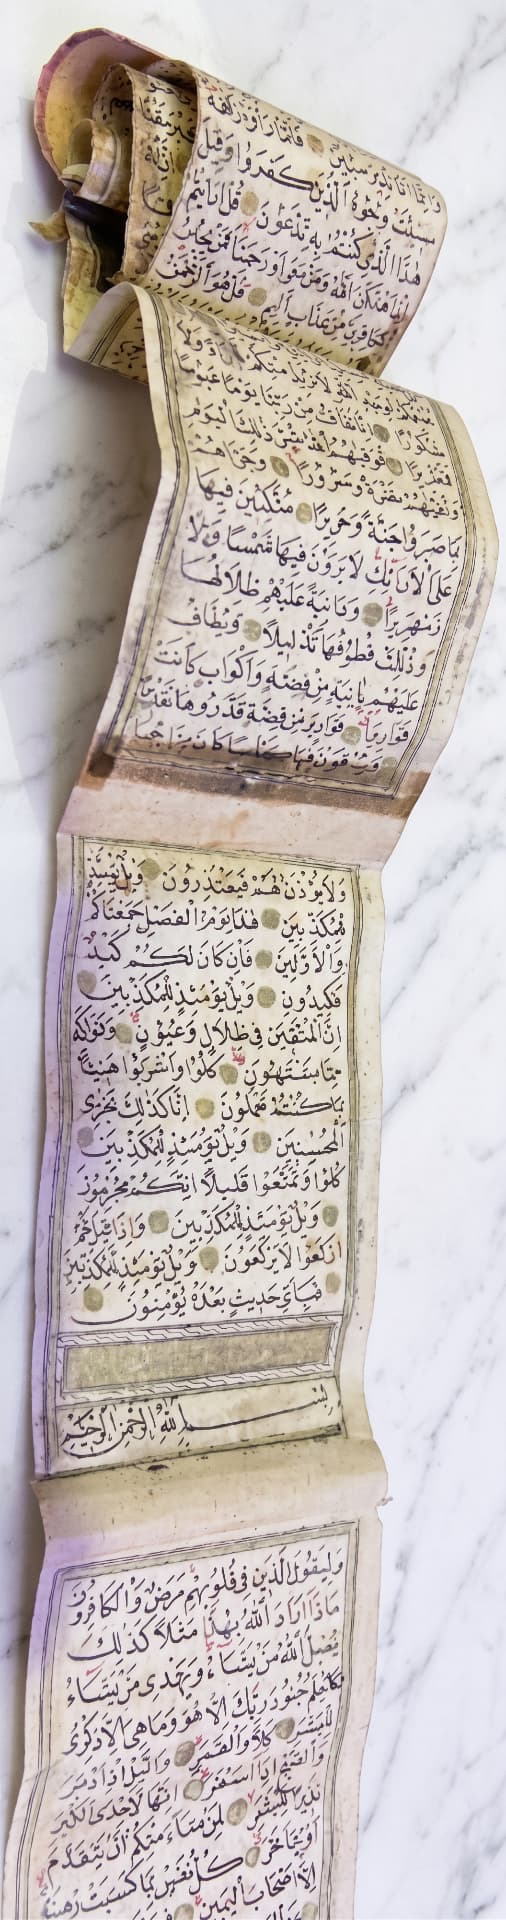 وانما انا نذير مبين فلما راوه زلفة
سيئت وجوه الذين كفروا وقيل
هذا الذي كنتم به تدعون قل ارايتم
ان اهلكني الله ومن معي او رحمنا فمن يجير
الكافرين من عذاب اليم قل هو الرحمن
نطعمكم لوجه الله لا نريد منكم جزاء ولا
شكورا انا نخاف من ربنا يوما عبوسا
قمطريرا فوقيهم الله شر ذلك اليوم
ولقيهم نضرة وسرورا وجزاهم
بما صبروا جنة وحريرا متكئين فيها
على الارائك لا يرون فيها شمسا ولا
زمهريرا ودانية عليهم ظلالها
وذللت قطوفها تذليلا ويطاف
عليهم بانية من فضة واكواب كانت
قواريرا قوارير من فضة قدروها تقديرا
ويسقون فيها كاسا كان مزاجها
ولا يؤذن لهم فيعتذرون ويل يومئذ
للمكذبين هذا يوم الفصل جمعناكم
والاولين فان كان لكم كيد
فكيدون ويل يومئذ للمكذبين
ان المتقين في ظلال وعيون وفواكه
مما يشتهون كلوا واشربوا هنيئا
بما كنتم تعملون انا كذلك نجزي
المحسنين ويل يومئذ للمكذبين
كلوا وتمتعوا قليلا انكم مجرمون
ويل يومئذ للمكذبين واذا قيل لهم
اركعوا لا يركعون ويل يومئذ للمكذبين
فباي حديث بعده يؤمنون
بسم الله الرحمن الرحيم
وليقول الذين في قلوبهم مرض والكافرون
ماذا اراد الله بهذا مثلا كذلك
يضل الله من يشاء ويهدي من يشاء
وما يعلم جنود ربك الا هو وما هي الا ذكرى
للبشر كلا والقمر واليل اذ ادبر
والصبح اذا اسفر انها لاحدى الكبر
نذيرا للبشر لمن شاء منكم ان يتقدم
او يتاخر كل نفس بما كسبت رهينة
الا اصحاب اليمين